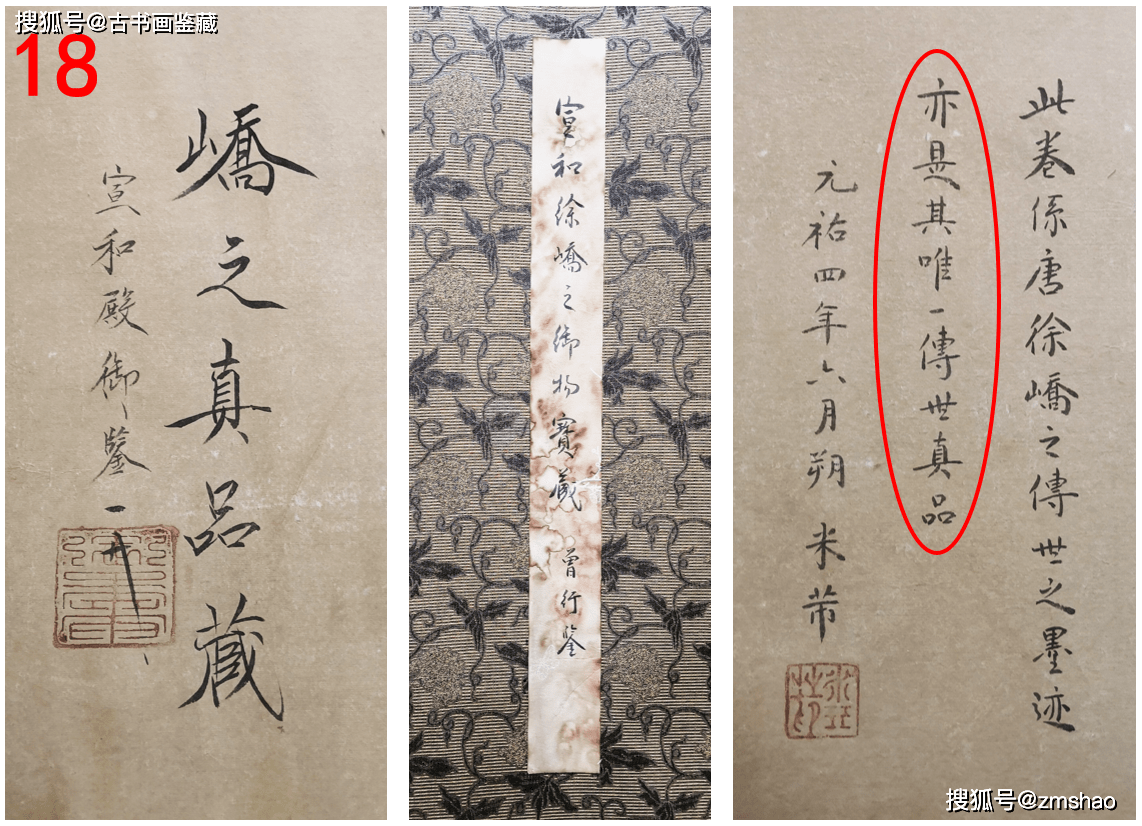 搜狐号@古书画鉴藏
18
嶠之真品藏
宣和殿御鑒
宣和徐嶠之御物寶藏 曾行鑒
此卷係唐徐嶠之傳世之墨迹
亦是其唯一傳世真品
元祐四年六月朔 米芾
搜狐号@zmshao